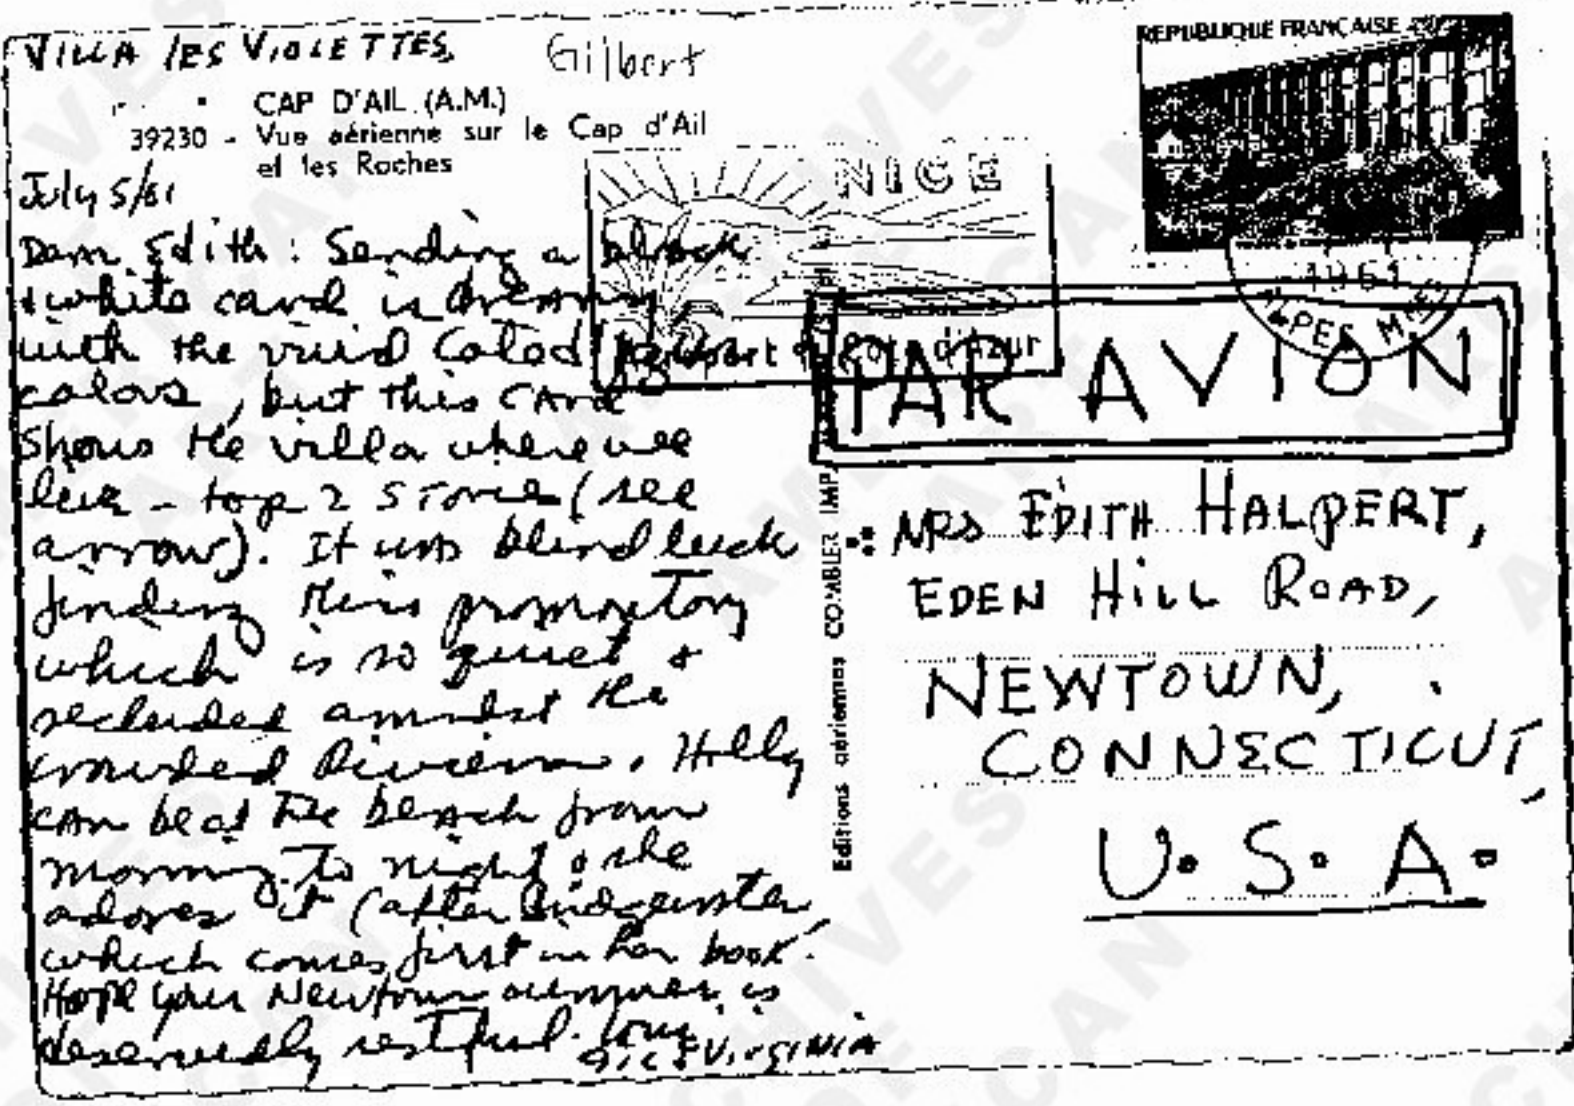 VILLA LES VIOLETTES,
Gilbert
CAP D'AIL (A.M.)
39230 - Vue aérienne sur le Cap d'Ail
et les Roches
July 5/61
Dear Edith: Sending a black
+ white card is dreary
with the vivid Coted'Azur
colors, but this CARd
shows the villa where we
live - top 2 stories (see
arrow). It was blind luck
finding this promontory
which is so quiet &
secluded amidst the
crowded Riviera. Holly
can be at the beach from
morning to night & she
adores it (after Bridgewater,
which comes first in her book.
Hope your Newtown summer is
deservedly restful. Love
& Virginia
REPUBLIQUE FRANÇAISE
1961
ALPES MMES
NICE
d'Azur
PAR AVION
Editions aériennes COMBIER IMP.
MRS EDITH HALPERT,
EDEN HILL ROAD,
NEWTOWN,
CONNECTICUT,
U.S.A.
ARCHIVES
AMERICAN
ART